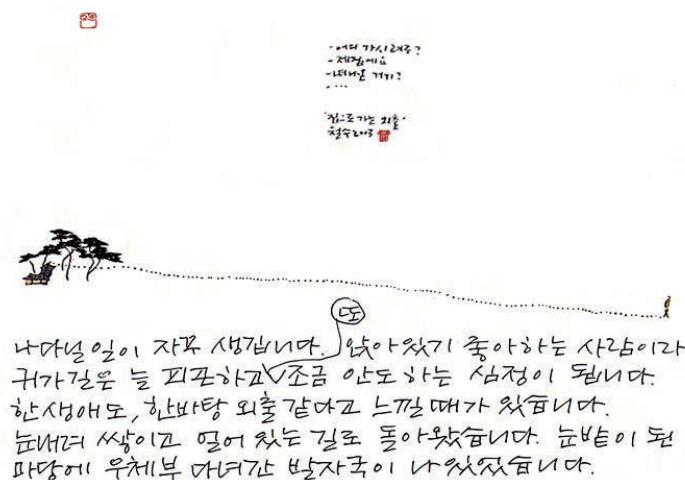 - 어디 가시려구?
- 제집에요
- 떠나온 거기?
- ...
'집으로 가는 외출'
철수 2003
또
나다닐 일이 자꾸 생깁니다. 앉아있기 좋아하는 사람이라
귀가길은 늘 피곤하고 조금 안도하는 심정이 됩니다.
한생애도, 한바탕 외출같다고 느낄때가 있습니다.
눈내려 쌓이고 얼어 있는 길로 돌아왔습니다. 눈밭이 된
마당에 우체부 다녀간 발자국이 나 있었습니다.